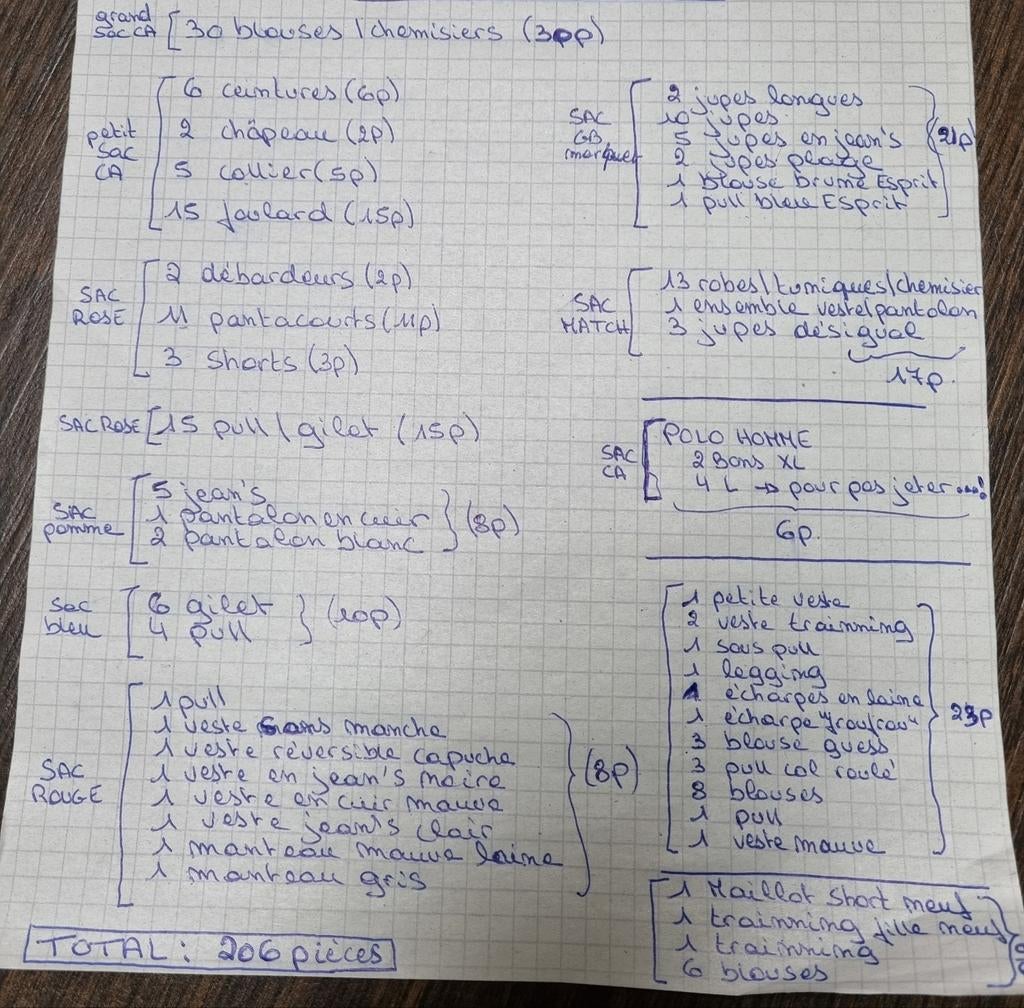 grand
sac CA
30 blouses / chemisiers (30p)
petit
sac
CA
6 ceintures (6p)
2 châpeau (2p)
5 collier (5p)
15 foulard (15p)
SAC
ROSE
2 débardeurs (2p)
11 pantacourts (11p)
3 shorts (3p)
SAC ROSE
15 pull / gilet (15p)
SAC
pomme
5 jean's
1 pantalon en cuir
2 pantalon blanc
(8p)
Sac
bleu
6 gilet
4 pull
(10p)
SAC
ROUGE
1 pull
1 veste sans mancha
1 veste réversible capucha
1 veste en jean's noire
1 veste en cuir mauve
1 veste jean's clair
1 manteau mauve laine
1 manteau gris
(8p)
TOTAL : 206 pièces
SAC
GB
(marque)
2 jupes longues
10 jupes
5 jupes en jean's
2 jupes plage
1 blouse brume Esprit
1 pull bleu Esprit
(21p)
SAC
MATCH
13 robes/tuniques/chemisier
1 ensemble veste/pantalon
3 jupes désigual
17p.
SAC
CA
POLO HOMME
2 Bons XL
4 L → pour pas jeter ...!
6p.
1 petite veste
2 veste trainning
1 sous pull
1 legging
1 écharpes en laine
1 écharpe "froufrou"
3 blouse guess
3 pull col roulé
8 blouses
1 pull
1 veste mauve
23p
1 Maillot short neuf
1 trainning fille neuf
1 trainning
6 blouses